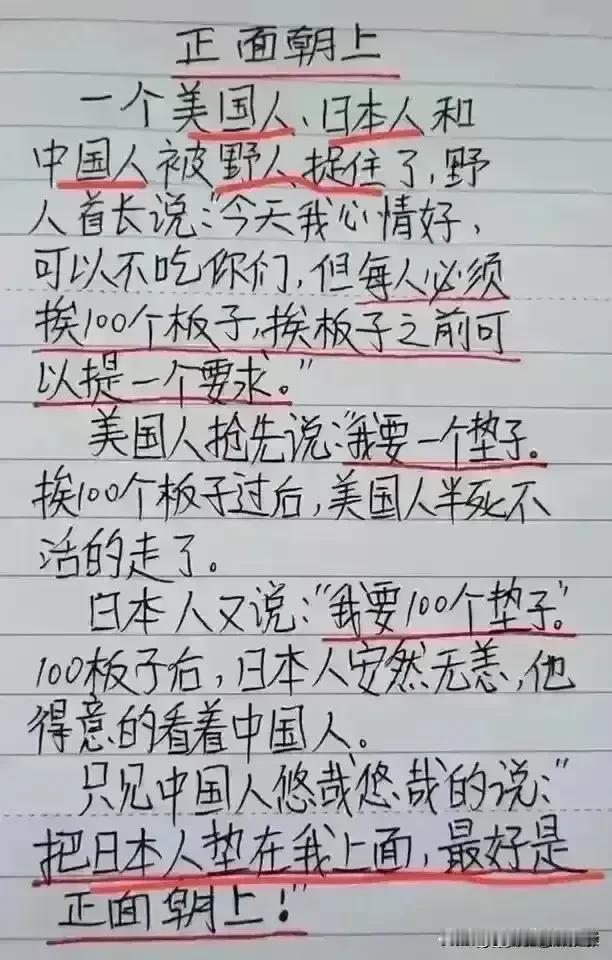 正面朝上
一个美国人、日本人和
中国人被野人捉住了,野
人酋长说:“今天我心情好,
可以不吃你们,但每人必须
挨100个板子,挨板子之前可
以提一个要求。”
美国人抢先说:“我要一个垫子。
挨100个板子过后,美国人半死不
活的走了。
日本人又说:“我要100个垫子。”
100板子后,日本人安然无恙,他
得意的看着中国人。
只见中国人悠哉悠哉的说:“
把日本人垫在我上面,最好是
正面朝上!”